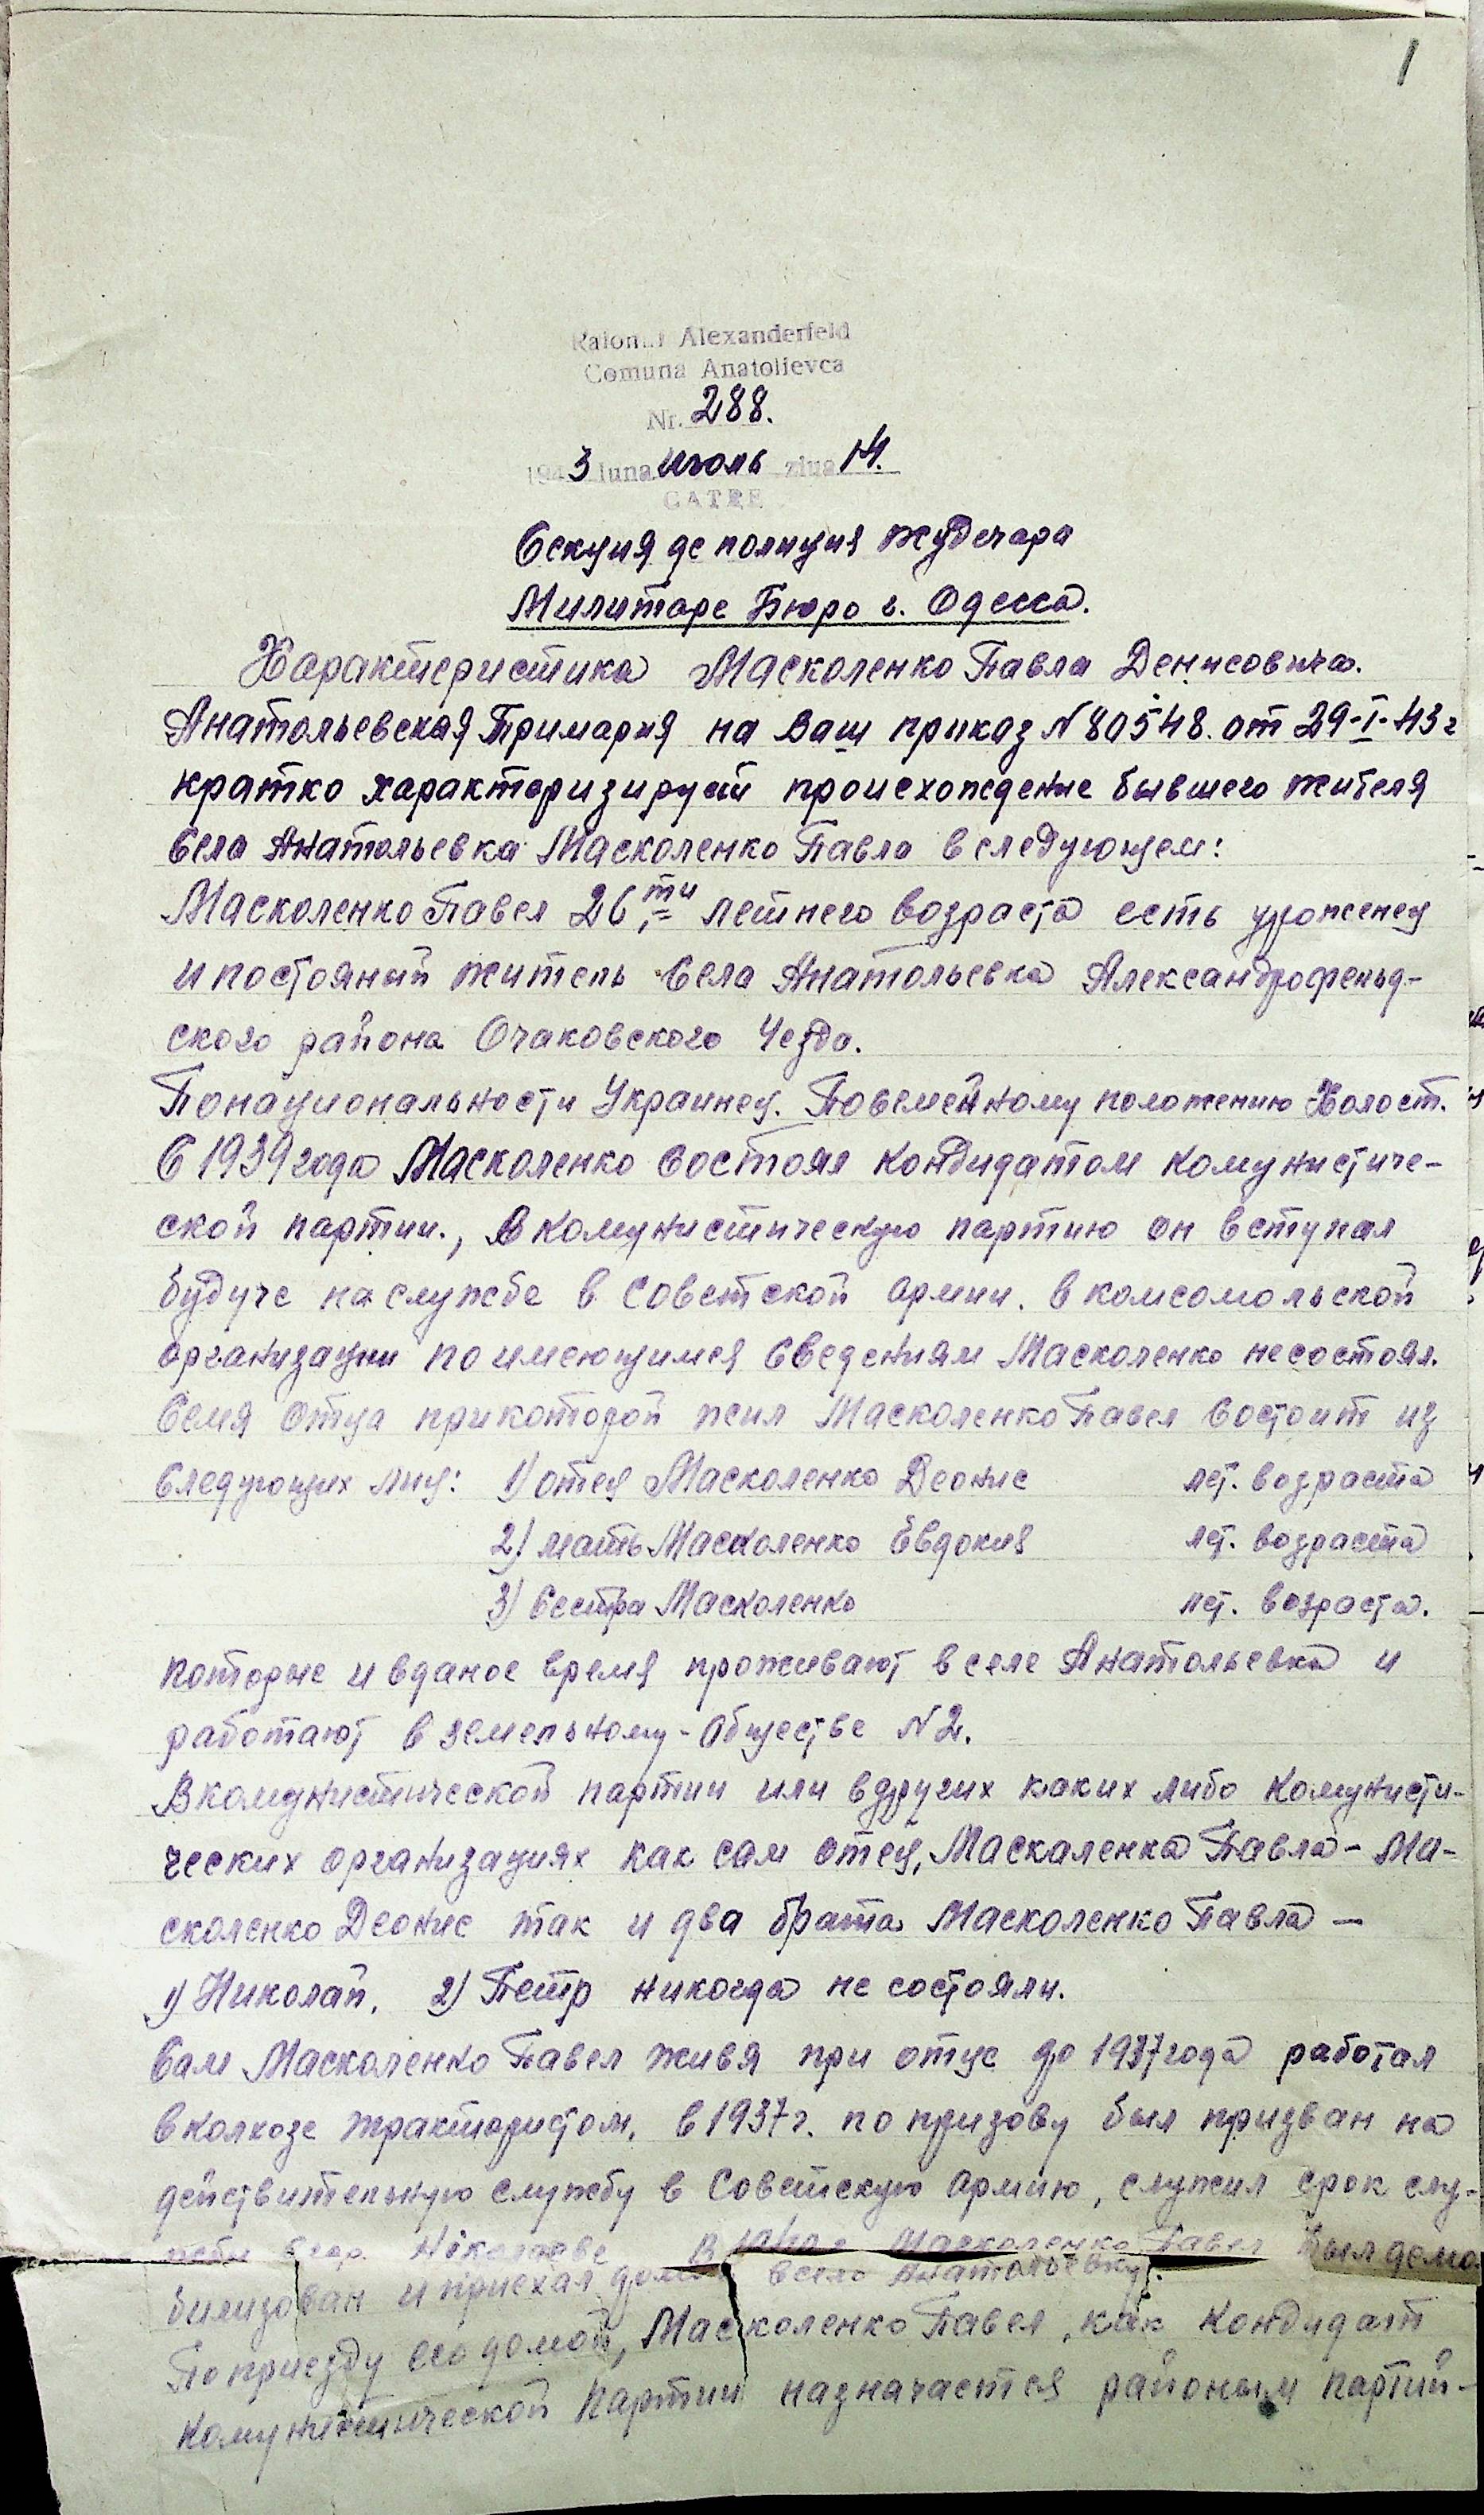 1
Raionul Alexanderfeld
Comuna Anatolievca
Nr. 288.
1943 luna Июль ziua 14.
CATRE
Секция де полиция жудечара
Милитаре Бюро г. Одесса.
Характеристика Масколенко Павла Денисовича.
Анатольевская Примария на Ваш приказ N 80548. от 29-I-43 г
кратко характеризирует происхождение бывшего жителя
села Анатольевка Масколенко Павла в следующем:
Масколенко Павел 26ти летнего возраста есть уроженец
и постояный житель села Анатольевка Александрофельд-
ского района Очаковского Уезда.
По национальности Украинец. По семейному положению Холост.
С 1939 года Масколенко состоял кондидатом комунистиче-
ской партии., В комунистическую партию он вступал
будуче на службе в Советской армии. в комсомольской
организации по имеющимся сведениям Масколенко не состоял.
Семя отца при которой жил Масколенко Павел состоит из
следующих лиц: 1) отец Масколенко Деонис лет. возраста
2) мать Масколенко Евдокия лет. возраста
3) Сестра Масколенко лет. возраста.
которые и в даное время проживают в селе Анатольевка и
работают в земельному-обществе N 2.
В комунистической партии или в других каких либо комунисти-
ческих организациях как сам отец, Маскаленка Павла - Ма-
сколенко Деонис так и два брата Масколенко Павла —
1) Николай, 2) Петр никогда не состояли.
Сам Масколенко Павел живя при отце до 1937 года работал
в колхозе трактористом, в 1937 г. по призову был призван на
действительную службу в Советскую армию, служил срок слу-
жбы в гор. Ніколаеве В Масколенко Павел был демо
билизован и приехал домой в село Анатольевку.
По приезду его домой, Масколенко Павел, как кондидат
комунистической партии назначается районым партий-